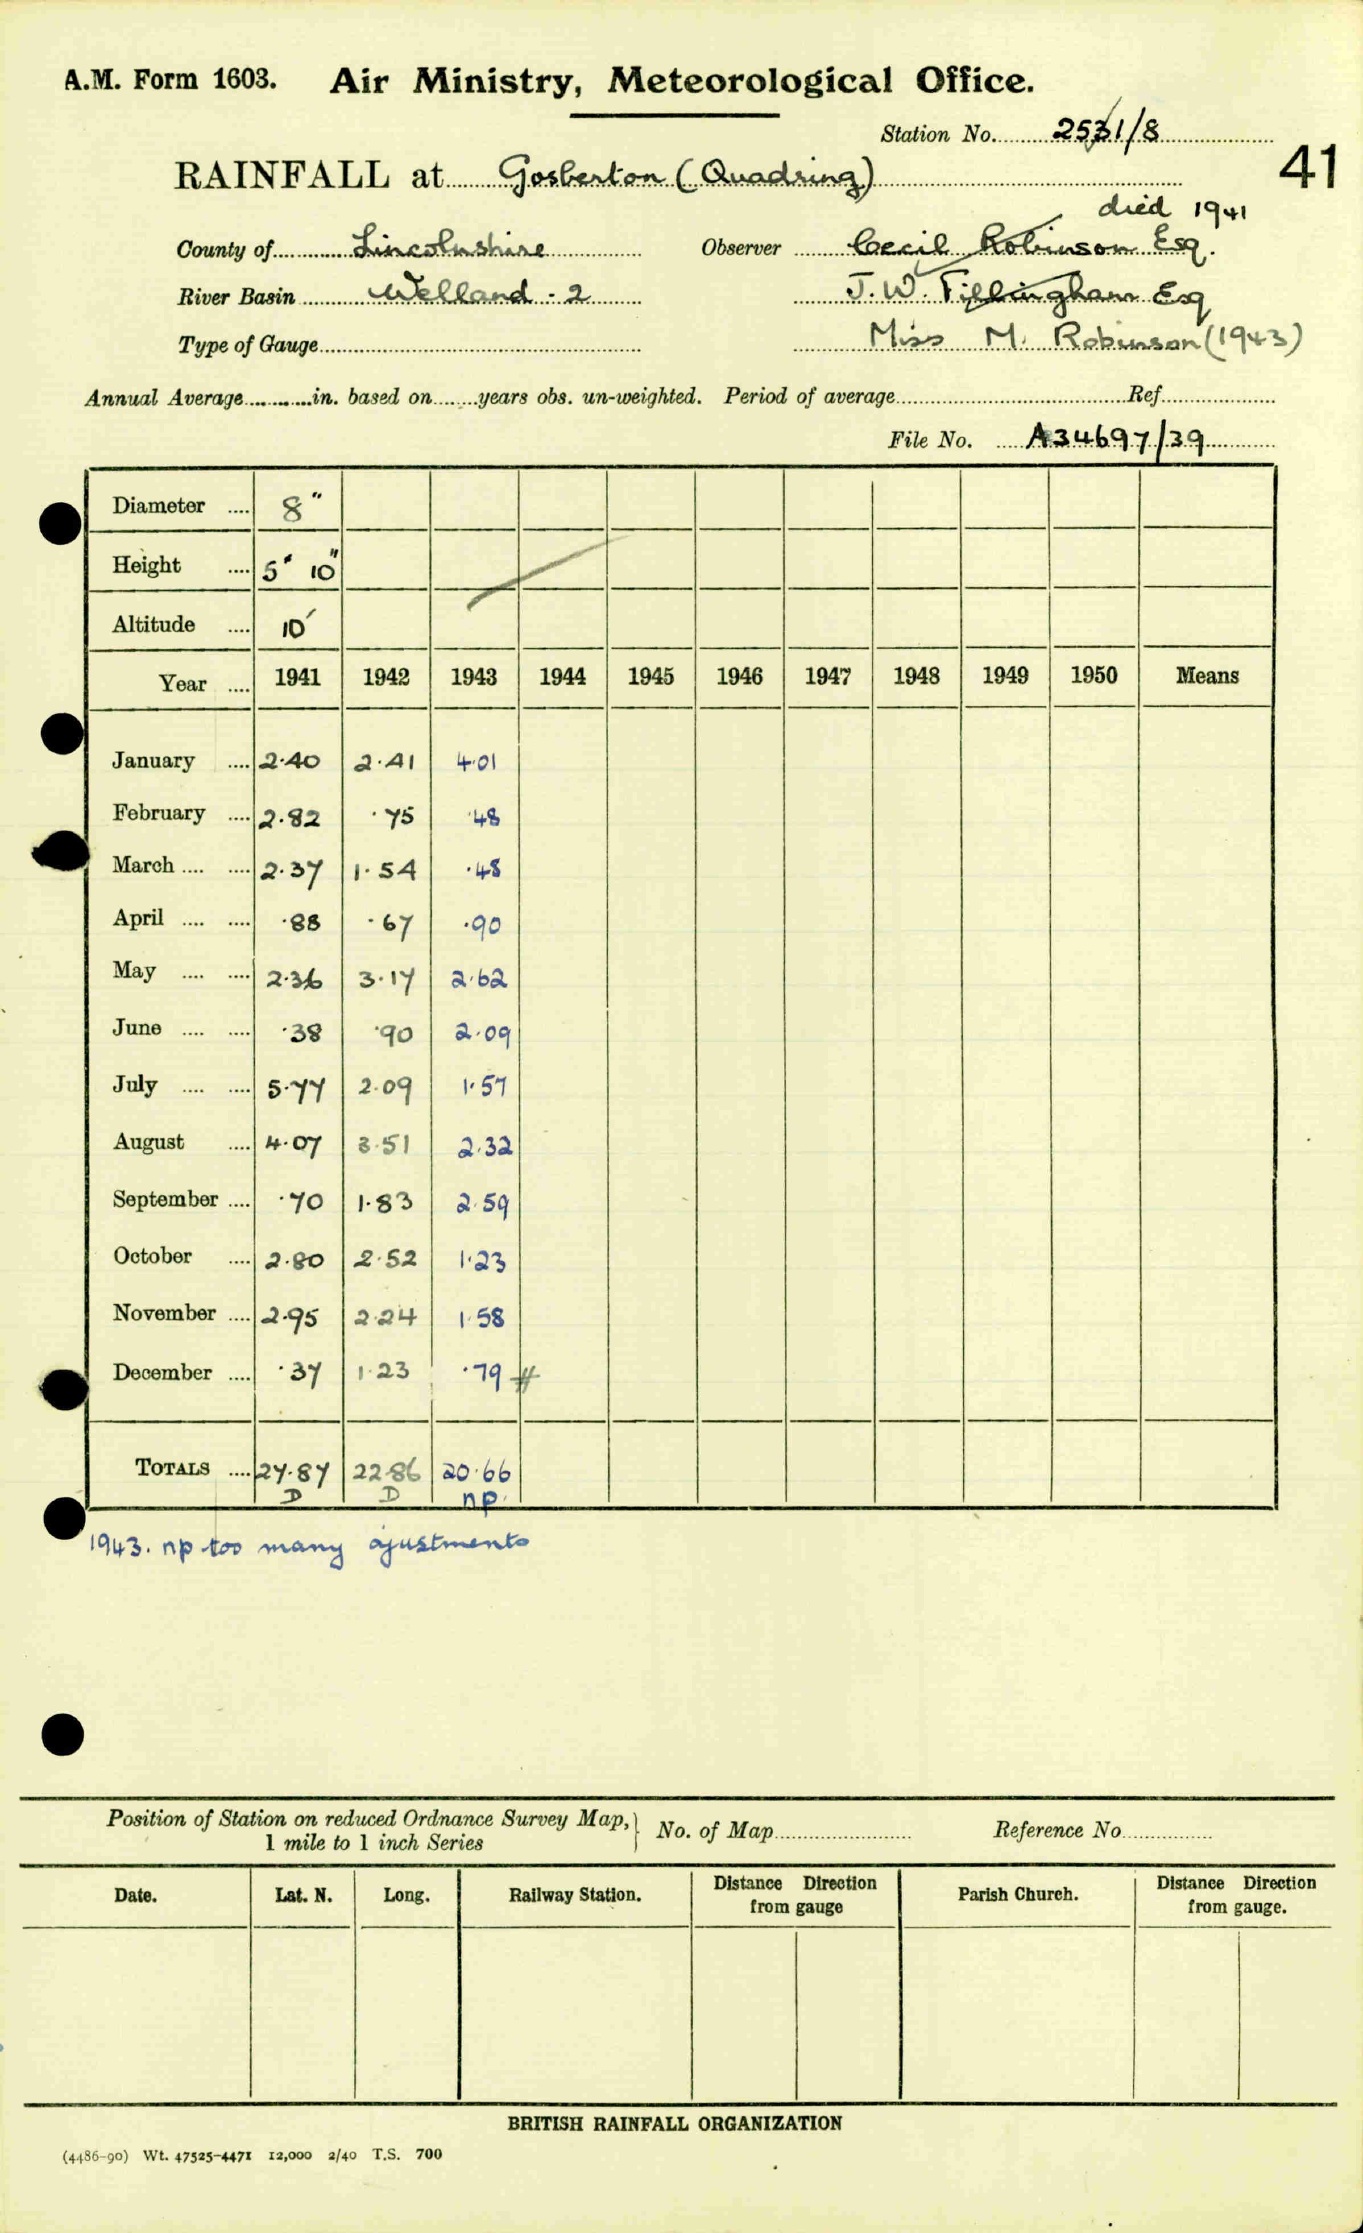 A.M. Form 1603. Air Ministry, Meteorological Office.
Station No. 2531/8
41
RAINFALL at Gosberton (Quadring)
died 1941
County of Lincolnshire Observer Cecil Robinson Esq.
River Basin Welland - 2 J. W. Fillingham Esq
Type of Gauge Miss M. Robinson (1943)
Annual Average in. based on years obs. un-weighted. Period of average Ref
File No. A34697/39
Diameter 8"
Height 5' 10"
Altitude 10'
Year 1941 1942 1943 1944 1945 1946 1947 1948 1949 1950 Means
January 2.40 2.41 4.01
February 2.82 .75 .48
March 2.37 1.54 .48
April .88 .67 .90
May 2.36 3.17 2.62
June .38 .90 2.09
July 5.77 2.09 1.57
August 4.07 3.51 2.32
September .70 1.83 2.59
October 2.80 2.52 1.23
November 2.95 2.24 1.58
December .37 1.23 .79 #
TOTALS 27.87 22.86 20.66
D D np.
1943. np too many ajustments
Position of Station on reduced Ordnance Survey Map, 1 mile to 1 inch Series } No. of Map Reference No
Date. Lat. N. Long. Railway Station. Distance Direction from gauge Parish Church. Distance Direction from gauge.
BRITISH RAINFALL ORGANIZATION
(4486-90) Wt. 47525-4471 12,000 2/40 T.S. 700